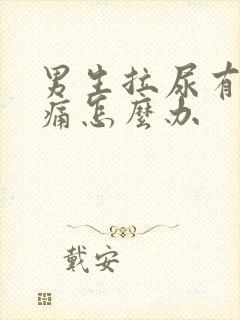 男生拉尿有
痛怎麼办
戴安